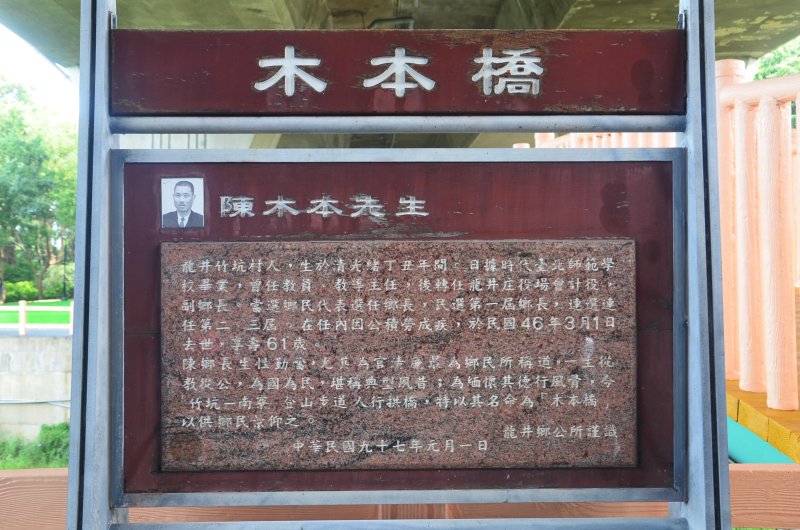 木本橋
陳木本先生
龍井竹坑村人，生於清光緒丁丑年間。日據時代臺北師範學
校畢業，曾任教員、教導主任，後轉任龍井庄役場會計役，
副鄉長。當選鄉民代表選任鄉長，民選第一屆鄉長，連選連
任第二、三屆。在任內因公積勞成疾，於民國46年3月1日
去世，享壽61歲。
陳鄉長生性勤奮，尤其為官清廉最為鄉民所稱道，一生從
教從公，為國為民，堪稱典型風昔；為緬懷其德行風骨，今
竹坑—南寮 登山步道人行拱橋，特以其名命為「木本橋」
以供鄉民景仰之。
龍井鄉公所謹識
中華民國九十七年元月一日